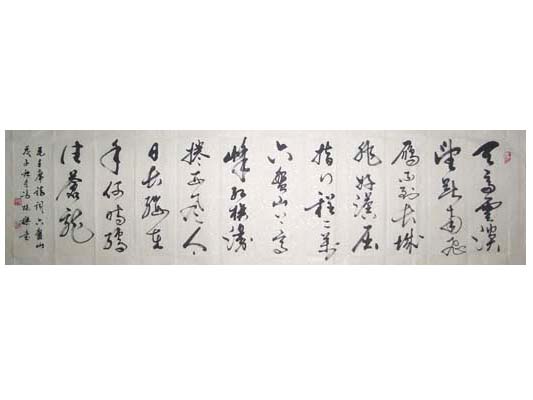 天高雲淡
望断南飛
雁不到長城
非好漢屈
指行程二萬
六盤山上高
峰紅旗漫
捲西風今
日長纓在
手何時縛
住蒼龍
毛主席詩詞六盤山
戊子秋月書